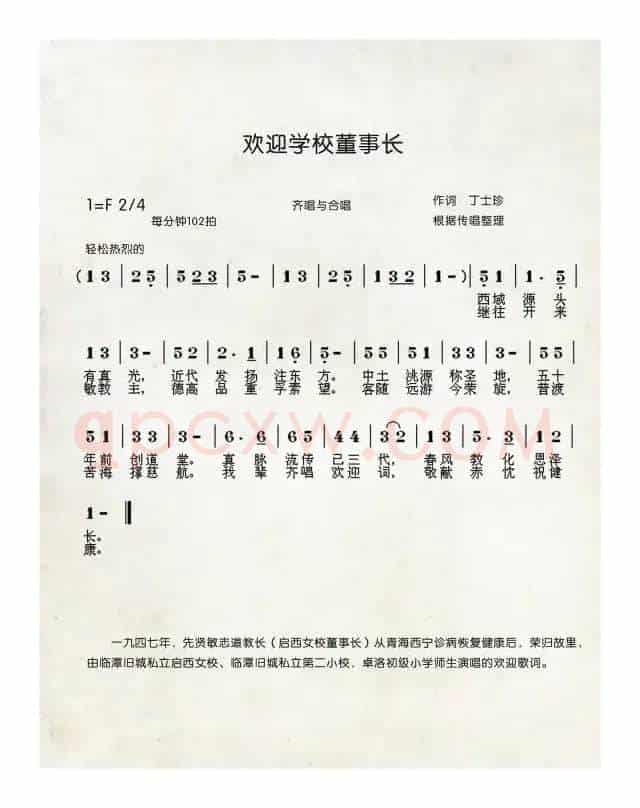 欢迎学校董事长
1=F 2/4
齐唱与合唱
作词 丁士珍
每分钟102拍
根据传唱整理
轻松热烈的
( 1 3 | 2 5 | 5 2 3 | 5 - | 1 3 | 2 5 | 1 3 2 | 1 - ) | 5 1 | 1 · 5 |
西域 源 头
继往 开 来
1 3 | 3 - | 5 2 | 2 · 1 | 1 6 | 5 - | 5 5 | 5 1 | 3 3 | 3 - | 5 5 |
有真 光， 近代 发 扬 注东 方。 中土 洮源 称圣 地， 五十
敏教 主， 德高 品 重 孚素 望。 客随 远游 今荣 旋， 普渡
5 1 | 3 3 | 3 - | 6 · 6 | 6 5 | 4 4 | 3 2 | 1 3 | 5 · 3 | 1 2 |
年前 创道 堂。 真 脉 流传 已三 代， 春风 教 化 恩泽
苦海 撑慈 航。 我 辈 齐唱 欢迎 词， 敬献 赤 忱 祝健
1 - ‖
长。
康。
qpcxw.COM
一九四七年，先贤敏志道教长（启西女校董事长）从青海西宁诊病恢复健康后，荣归故里，
由临潭旧城私立启西女校、临潭旧城私立第二小校、卓洛初级小学师生演唱的欢迎歌词。